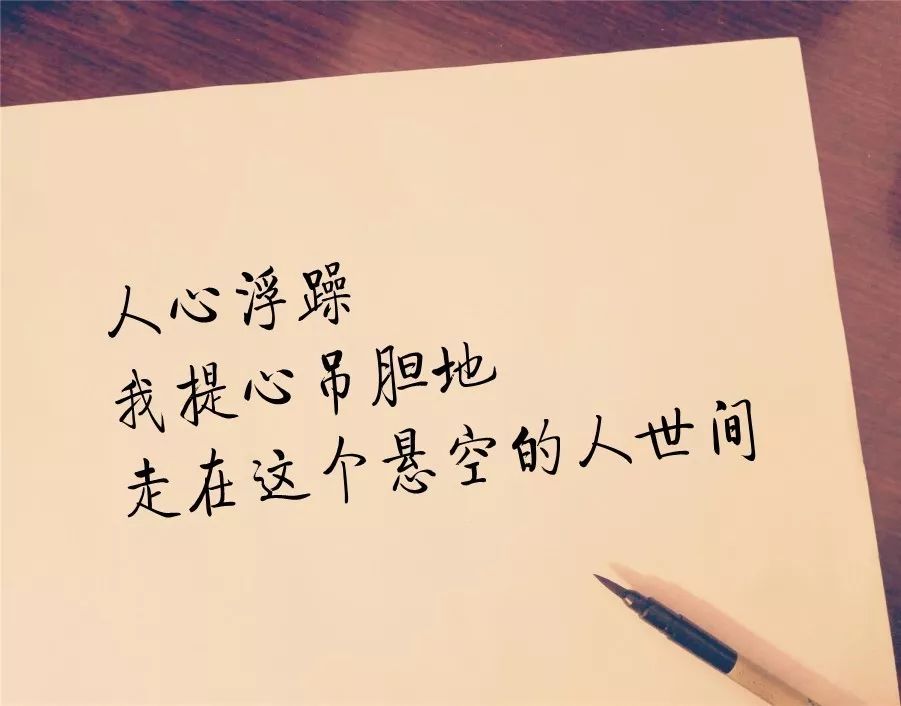 人心浮躁
我提心吊胆地
走在这个悬空的人世间